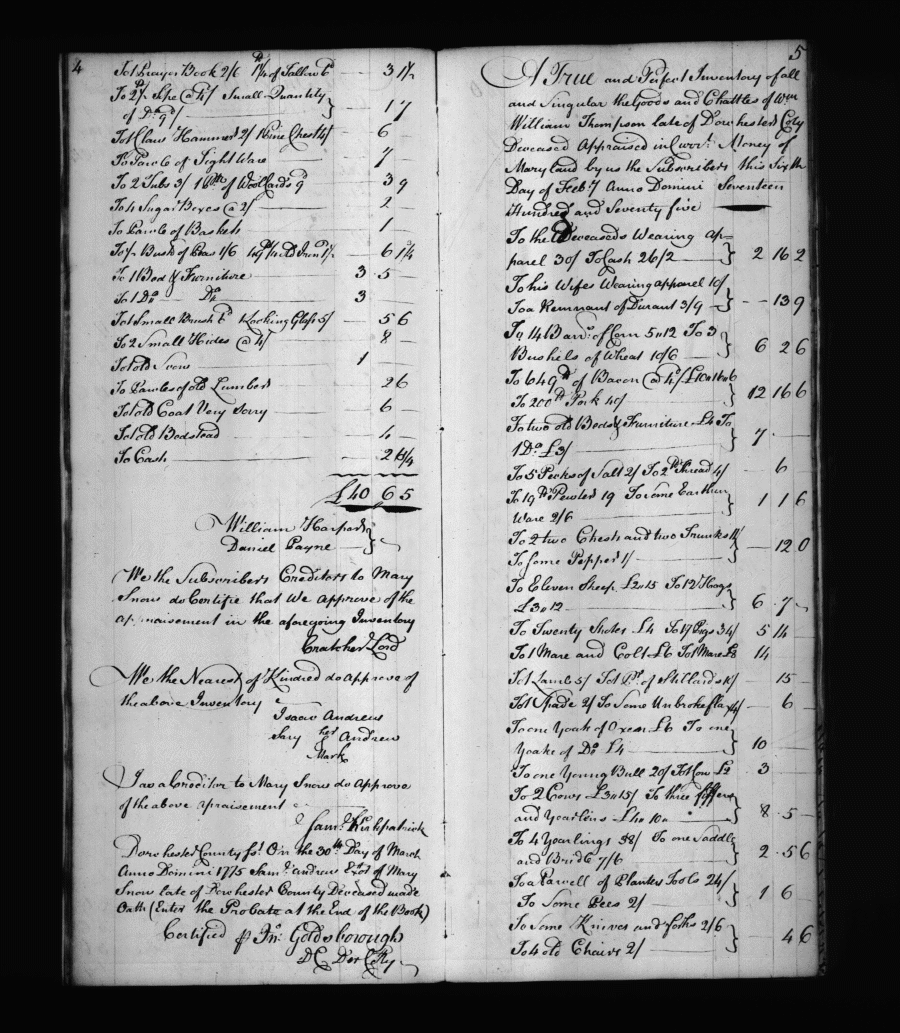 4
To 1 Prayer Book 2/6 1 lb 1/4 of Tallow 6d — 3 1 1/2
To 2 lb Sope @ 4/ Small Quantity
of Do 9d/ — 1 7
To 1 Claw Hammer 2/ 1 Pine Chest 4/ — 6 —
To Parcle of Tight Ware — 7 —
To 2 Tubs 3/ 1 of Wool Cards 9d — 3 9
To 4 Sugar Boxes @ 2/ — 2
To Parcle of Baskets — 1
To 1/2 Bush of Peas 1/6 old Iron — 6 1/4
To 1 Bed & Furniture 3 5 —
To 1 Do Do 3
To 1 Small Trunk 1 Looking Glass 5/ — 5 6
To 2 Small Hides @ 4/ — 8 —
To 1 old 1
To Parcles of old Lumber 2 6
To 1 old Coat Very Sorry — 6 —
To 1 old Bedstead — 4 —
To Cash — 2
£40 6 5
William Harper
Daniel Payne
We the Subscribers Creditors to Mary
Snow do Certifie that We approve of the
appraisement in the aforegoing Inventory
Cratcher Lord
We the Nearest of Kindred do approve of
the above Inventory
Isaac Andrew
Sary her Andrew
Mark
I as a Creditor to Mary Snow do approve
of the above apraisement
Saml. Kirkpatrick
Dorchester County Sst. On the 30th Day of March
Anno Domini 1775 Saml. Andrew Exor. of Mary
Snow late of Dorchester County Deceased made
Oath (Enter the Probate at the End of the Book)
Certified p Jno. Goldsborough
DC Dor Coty
5
A True and Perfect Inventory of all
and Singular the Goods and Chattles of Wm
William Thompson late of Dorchester Coty
Deceased Appraised in Curr. Money of
Maryland by us the Subscribers this Sixth
Day of Feby Anno Domini Seventeen
Hundred and Seventy five
To the Deceaseds Wearing ap=
parel 30/ To Cash 26/2 — 2 16 2
To his Wifes Wearing apparel 10/
To a Remnant of Durant 3/9 — 13 9
To 14 Barrs. of Corn 5"12 To 3
Bushels of Wheat 10/6 — 6 2 6
To 649 lb of Bacon @ 4d/ £10"16"6
To 200 lb Pork 40/ 12 16 6
To two old Beds & Furniture £4 To
1 Do. £3/ 7 —
To 5 Pecks of Salt 2/ To 2 lb Thread 4/ — 6 —
To 19 lb Pewter 19 To some Earthen
Ware 2/6 — 1 1 6
To 2 two Chests and two Trunks 11/
To some Pepper 1/ — 12 0
To Eleven Sheep £2"15 To 12 Hogs
£3"12 — 6 7
To Twenty Shotes £4 To 17 Pigs 34/ 5 14
To 1 Mare and Colt £6 To 1 Mare £8 14
To 1 Lamb 5/ To 1 Pr. of Stillards 10/ — 15 —
To 1 Spade 2/ To Some Unbroke flax 4/ — 6 —
To one Yoak of Oxen £6 To one
Yoake of Do £4 — 10 —
To one Young Bull 20/ To 1 Cow £2 3 —
To 2 Cows £3"15/ To three
and Yearlins £4"10 — 8 5 —
To 4 Yearlings 38/ To one Saddle
and Bridle 7/6 — 2 5 6
To a Parcell of Planters Tools 24/
To Some Pees 2/ — 1 6
To Some Knives and forks 2/6
To 4 old Chairs 2/ — 4 6